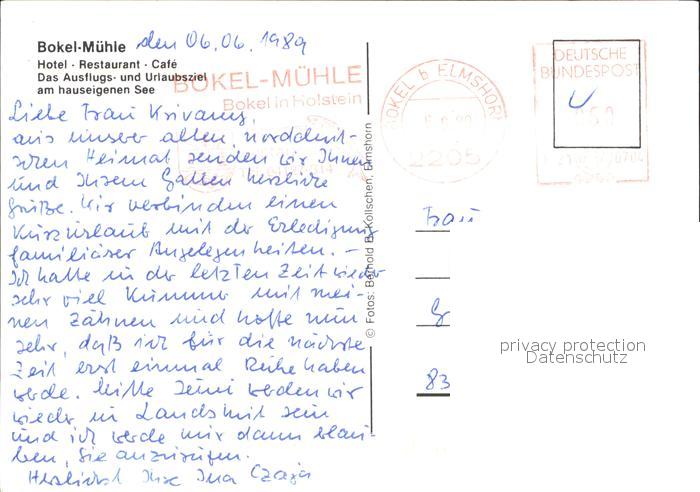 Bokel-Mühle den 06.06.1989
Hotel · Restaurant · Café
Das Ausflugs- und Urlaubsziel
am hauseigenen See
BOKEL-MÜHLE
Bokel in Holstein
BOKEL b ELMSHORN
2205
DEUTSCHE
BUNDESPOST
Liebe Frau
aus unserer alten, norddeut-
schen Heimat senden wir Ihnen
und Ihrem Gatten herzliche
Grüße. Wir verbinden einen
Kurzurlaub mit der Erledigung
familiärer Angelegenheiten. –
Ich hatte in der letzten Zeit wieder
sehr viel Kummer mit mei-
nen Zähnen und hoffe nun
sehr, daß ich für die nächste
Zeit erst einmal Ruhe haben
werde. Mitte Juni werden wir
wieder in Landshut sein
und ich werde mir dann erlau-
ben, Sie anzurufen.
Herzlichst Ihre Ina Czaja
© Fotos: Berthold B. Kollschen, Elmshorn
Frau
G
83
privacy protection
Datenschutz